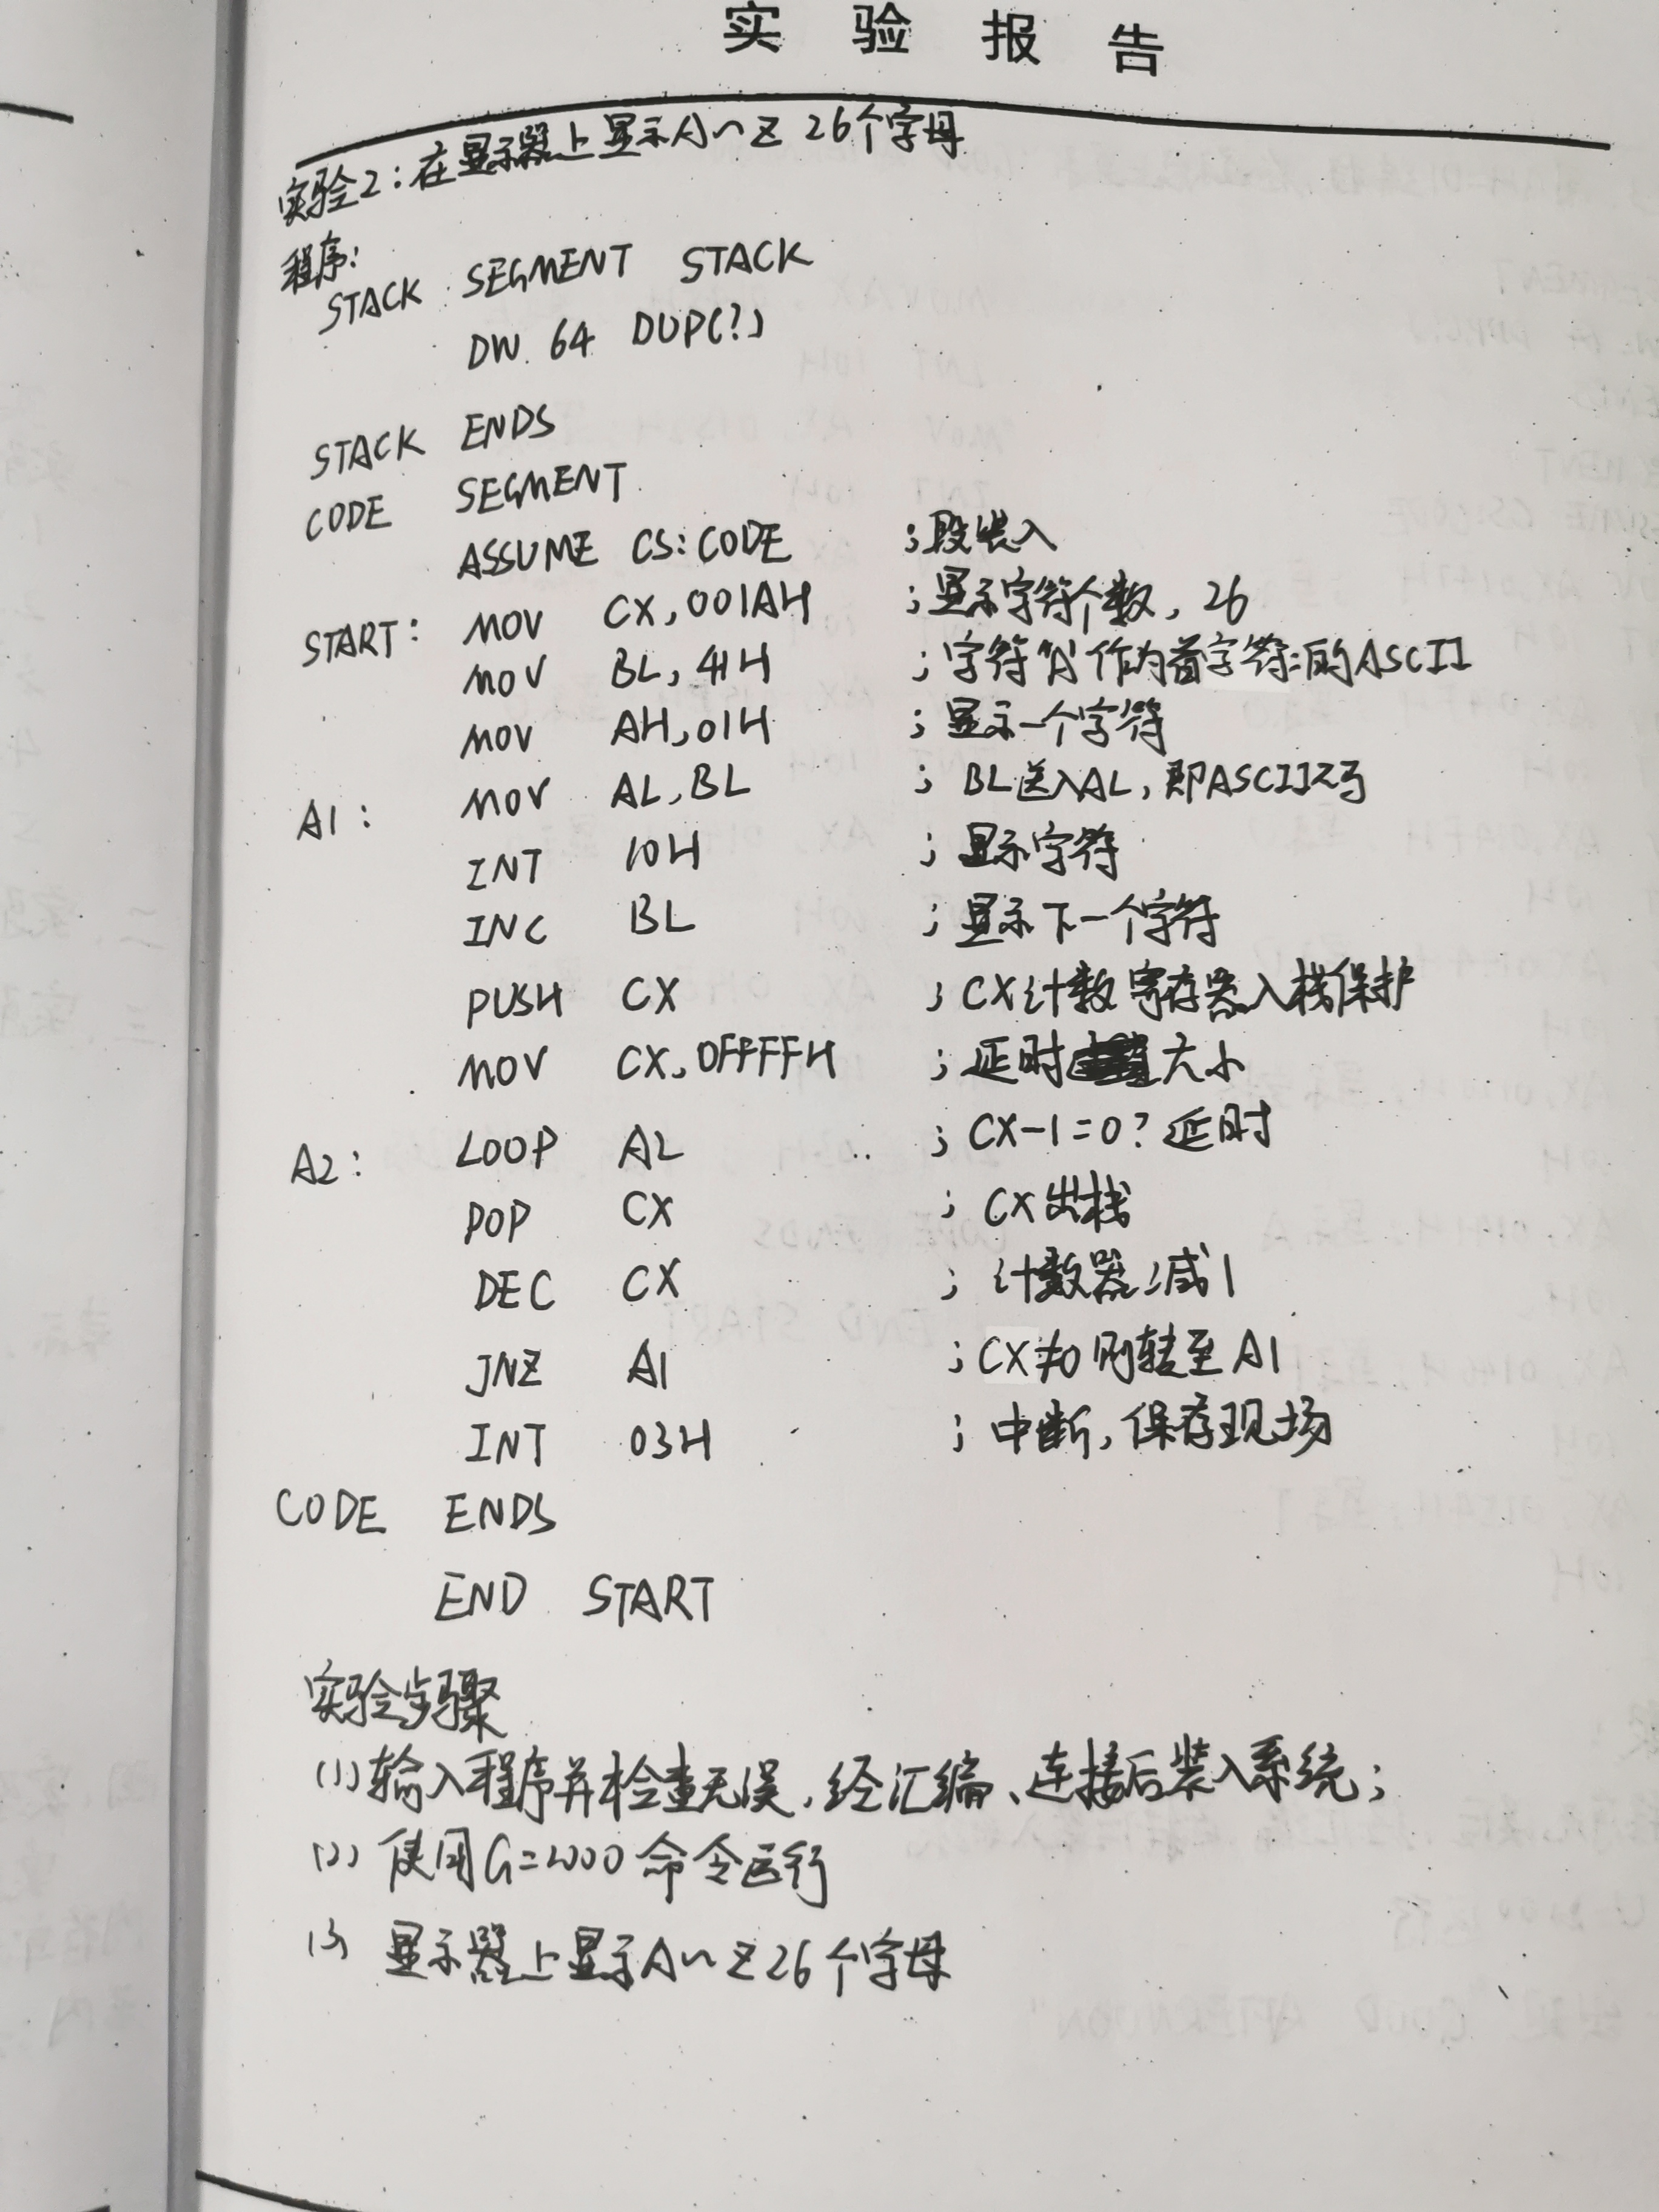 实验报告
实验2:在显示器上显示A~Z 26个字母
程序:
STACK SEGMENT STACK
DW 64 DUP(?)
STACK ENDS
CODE SEGMENT
ASSUME CS:CODE ;段装入
START: MOV CX,001AH ;显示字符个数,26
MOV BL,41H ;字符"A"作为首字符的ASCII
MOV AH,01H ;显示一个字符
A1: MOV AL,BL ;BL送入AL,即ASCII码
INT 10H ;显示字符
INC BL ;显示下一个字符
PUSH CX ;CX计数寄存器入栈保护
MOV CX,0FFFFH ;延时大小
A2: LOOP A2 ;CX-1=0?延时
POP CX ;CX出栈
DEC CX ;计数器减1
JNZ A1 ;CX≠0则转至A1
INT 03H ;中断,保存现场
CODE ENDS
END START
实验步骤
(1)输入程序并检查无误,经汇编、连接后装入系统;
(2)使用G=2000命令运行
(3)显示器上显示A~Z26个字母